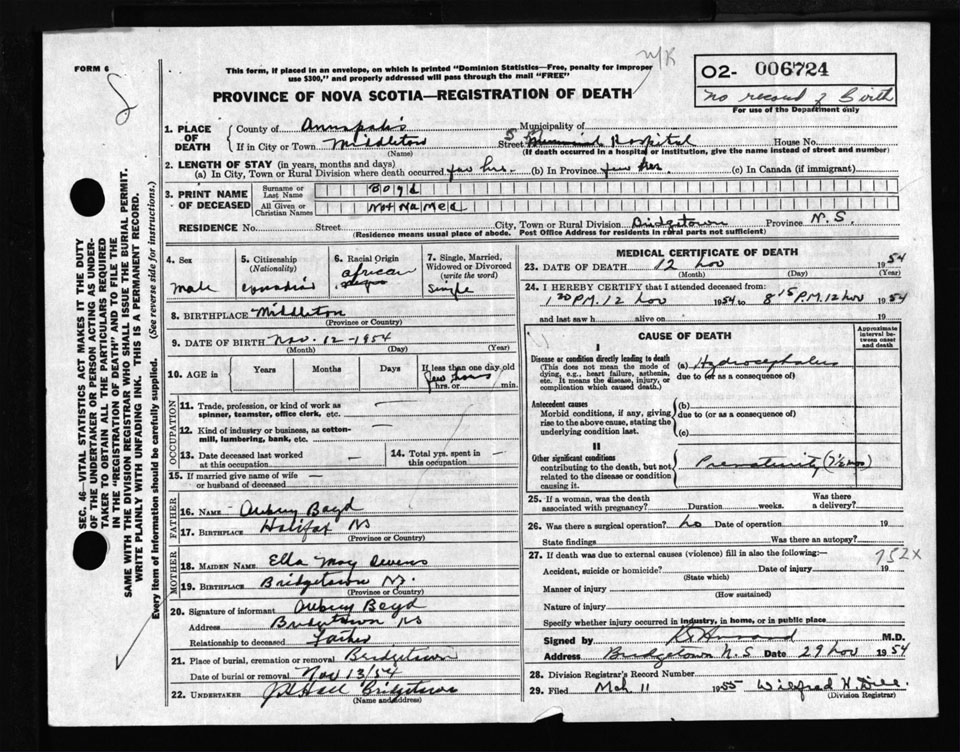 FORM 6
This form, if placed in an envelope, on which is printed "Dominion Statistics—Free, penalty for improper
use $300," and properly addressed will pass through the mail "FREE"
N/R
02- 006724
no record of Birth
For use of the Department only
PROVINCE OF NOVA SCOTIA—REGISTRATION OF DEATH
1. PLACE OF DEATH
County of Annapolis Municipality of
If in City or Town Middleton Street Hospital House No.
(Name) (If death occurred in a hospital or institution, give the name instead of street and number)
2. LENGTH OF STAY (in years, months and days)
(a) In City, Town or Rural Division where death occurred few hrs. (b) In Province few hrs. (c) In Canada (if immigrant)
3. PRINT NAME OF DECEASED
Surname or Last Name Boyd
All Given or Christian Names Not Named
RESIDENCE No. Street City, Town or Rural Division Bridgetown Province N.S.
(Residence means usual place of abode. Post Office Address for residents in rural parts not sufficient)
4. Sex Male
5. Citizenship (Nationality) Canadian
6. Racial Origin African Negro
7. Single, Married, Widowed or Divorced (write the word) Single
8. BIRTHPLACE Middleton
(Province or Country)
9. DATE OF BIRTH Nov. 12-1954
(Month) (Day) (Year)
10. AGE in Years Months Days If less than one day old few hours hrs. or min.
OCCUPATION
11. Trade, profession, or kind of work as
spinner, teamster, office clerk, etc. —
12. Kind of industry or business, as cotton-
mill, lumbering, bank, etc. —
13. Date deceased last worked
at this occupation —
14. Total yrs. spent in
this occupation —
15. If married give name of wife
or husband of deceased —
FATHER
16. NAME Aubrey Boyd
17. BIRTHPLACE Halifax NS
MOTHER
18. MAIDEN NAME Ella May
19. BIRTHPLACE Bridgetown N.S.
(Province or Country)
20. Signature of informant Aubrey Boyd
Address Bridgetown NS
Relationship to deceased Father
21. Place of burial, cremation or removal Bridgetown
Date of burial or removal Nov 13/54
22. UNDERTAKER Hall Bridgetown
(Name and Address)
MEDICAL CERTIFICATE OF DEATH
23. DATE OF DEATH 12 Nov 1954
(Month) (Day) (Year)
24. I HEREBY CERTIFY that I attended deceased from:
1 20 P.M. 12 Nov 1954 to 8 15 P.M. 12 Nov 1954
and last saw h alive on 19
CAUSE OF DEATH
Approximate interval between onset and death
I
Disease or condition directly leading to death
(This does not mean the mode of
dying, e.g., heart failure, asthenia,
etc. It means the disease, injury, or
complication which caused death.)
(a) Hydrocephalus
due to (or as a consequence of)
Antecedent causes
Morbid conditions, if any, giving
rise to the above cause, stating the
underlying condition last.
(b)
due to (or as a consequence of)
(c)
II
Other significant conditions
contributing to the death, but not
related to the disease or condition
causing it.
Prematurity (7½ mos)
25. If a woman, was the death
associated with pregnancy? Duration weeks. Was there
a delivery?
26. Was there a surgical operation? No Date of operation 19
State findings Was there an autopsy?
27. If death was due to external causes (violence) fill in also the following:—
752X
Accident, suicide or homicide? Date of injury 19
(State which)
Manner of injury
(How sustained)
Nature of injury
Specify whether injury occurred in industry, in home, or in public place
Signed by M.D.
Address Bridgetown N.S Date 29 Nov 1954
28. Division Registrar's Record Number
29. Filed Mch 11 1955 Wilfred H.
(Division Registrar)
SEC. 46—VITAL STATISTICS ACT MAKES IT THE DUTY
OF THE UNDERTAKER OR PERSON ACTING AS UNDER-
TAKER TO OBTAIN ALL THE PARTICULARS REQUIRED
IN THE "REGISTRATION OF DEATH" AND TO FILE THE
SAME WITH THE DIVISION REGISTRAR WHO SHALL ISSUE THE BURIAL PERMIT.
WRITE PLAINLY WITH UNFADING INK. THIS IS A PERMANENT RECORD.
Every item of information should be carefully supplied. (See reverse side for instructions.)